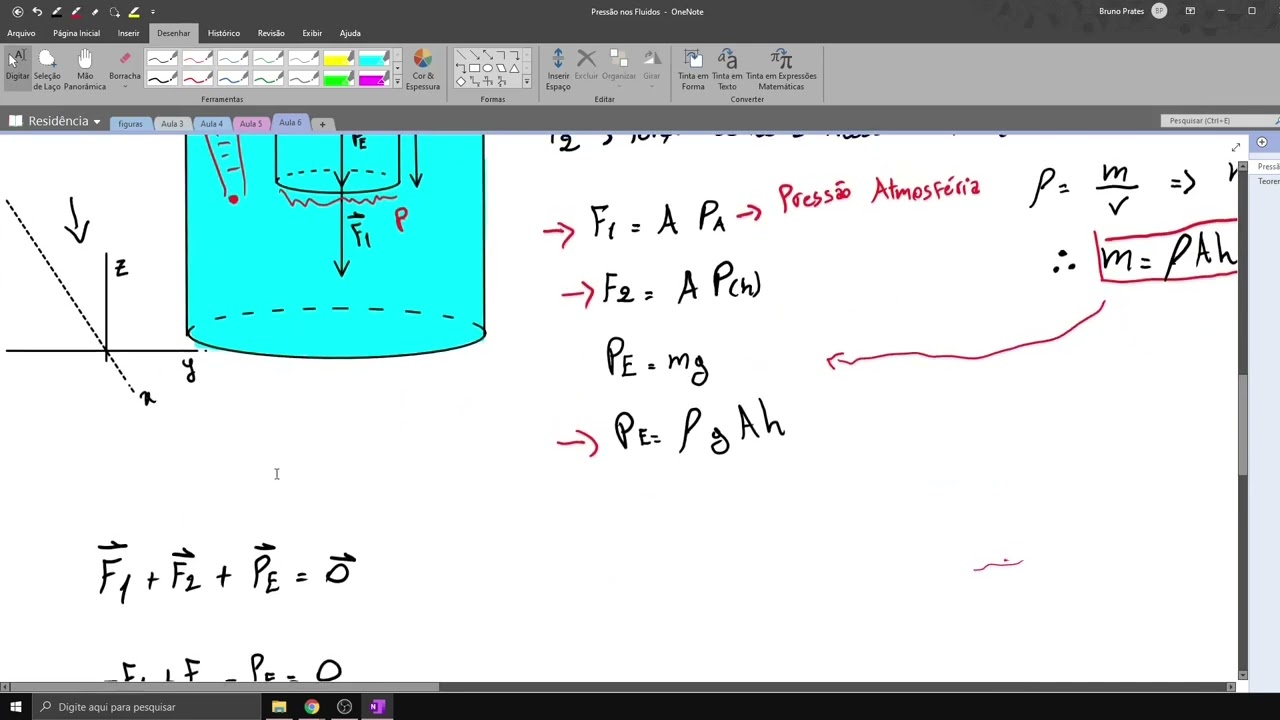 Pressão nos Fluidos - OneNote
Bruno Prates
BP
Arquivo Página Inicial Inserir Desenhar Histórico Revisão Exibir Ajuda
Digitar
Seleção de Laço
Mão Panorâmica
Borracha
Cor & Espessura
Inserir Espaço
Excluir
Organizar
Girar
Tinta em Forma
Tinta em Texto
Tinta em Expressões Matemáticas
Ferramentas
Formas
Editar
Converter
Residência
figuras
Aula 3
Aula 4
Aula 5
Aula 6
Pesquisar (Ctrl+E)
Pressã
Teorer
PE
F⃗1
P
z
y
x
→ F1 = A PA → Pressão Atmosféria
→ F2 = A P(h)
PE = mg
→ PE = ρ g A h
ρ = m/v =>
∴ m = ρ A h
F⃗1 + F⃗2 + P⃗E = 0⃗
- F1 + F - PE = 0
Digite aqui para pesquisar